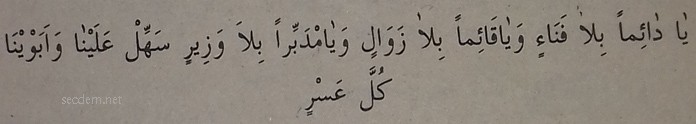 يَا دَائِماً بِلاَ فَنَاءٍ وَيَاقَائِماً بِلاَ زَوَالٍ وَيَامُدَبِّراً بِلاَ وَزِيرٍ سَهِّلْ عَلَيْنَا وَاَبَوْيْنَا
كُلَّ عَسْرٍ
secdem.net